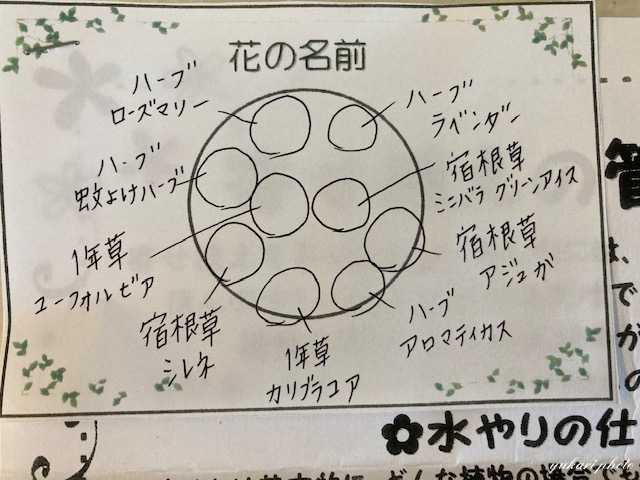 花の名前
ハーブ
ローズマリー
ハーブ
ラベンダー
ハーブ
蚊よけハーブ
宿根草
ミニバラ グリーンアイス
1年草
ユーフォルビア
宿根草
アジュガ
宿根草
シレネ
1年草
カリブラコア
ハーブ
アロマティカス
✿水やりの仕
yukari photo